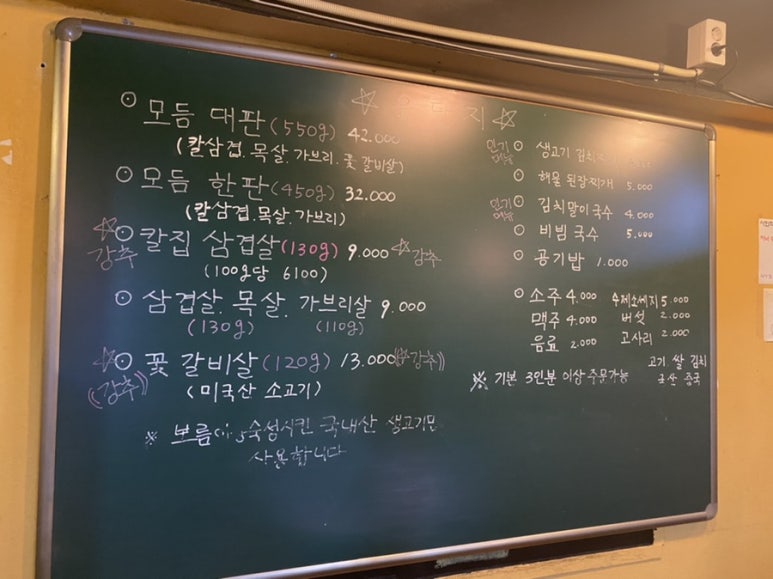 모듬 대판(550g) 42.000
(칼삼겹.목살.가브리.꽃 갈비살)
모듬 한판(450g) 32.000
(칼삼겹.목살.가브리)
강추 칼집 삼겹살(130g) 9.000 강추
(100g당 6100)
삼겹살.목살.가브리살 9.000
(130g) (110g)
(강추) 꽃 갈비살(120g) 13.000 (강추)
(미국산 소고기)
※ 보름 숙성시킨 국내산 생고기만
사용합니다
인기메뉴 생고기
해물 된장찌개 5.000
인기메뉴 김치말이 국수 4.000
비빔 국수 5.000
공기밥 1.000
소주 4.000 수제소세지 5.000
맥주 4.000 버섯 2.000
음료 2.000 고사리 2.000
고기 쌀 김치
※ 기본 3인분 이상 주문가능 국산 중국